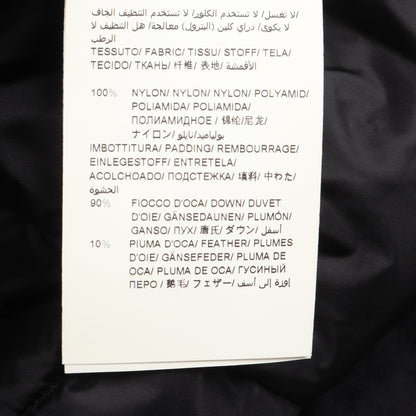 لا تغسل/ لا تستخدم الكلور/ لا تستخدم التنظيف الجاف
لا يكوى/ دراي كلين (البترول) معالجة/ هل التنظيف لا
الرطب
TESSUTO/ FABRIC/ TISSU/ STOFF/ TELA/
TECIDO/ ТКАНЬ/ 纤维/ 表地/ الأقمشة
100% NYLON/ NYLON/ NYLON/ POLYAMID/
POLIAMIDA/ POLIAMIDA/
ПОЛИАМИДНОЕ/ 锦纶/尼龙/
ナイロン/ بولياميد/نايلو
IMBOTTITURA/ PADDING/ REMBOURRAGE/
EINLEGESTOFF/ ENTRETELA/
ACOLCHOADO/ ПОДСТЕЖКА/ 填料/ 中わた/
الحشوة
90% FIOCCO D'OCA/ DOWN/ DUVET
D'OIE/ GÄNSEDAUNEN/ PLUMÓN/
GANSO/ ПУХ/ 鹰氏/ ダウン/ أسفل
10% PIUMA D'OCA/ FEATHER/ PLUMES
D'OIE/ GÄNSEFEDER/ PLUMA DE
OCA/ PLUMA DE OCA/ ГУСИНЫЙ
ПЕРО/ 鹅毛/ フェザー/ إوزة إلى أسف